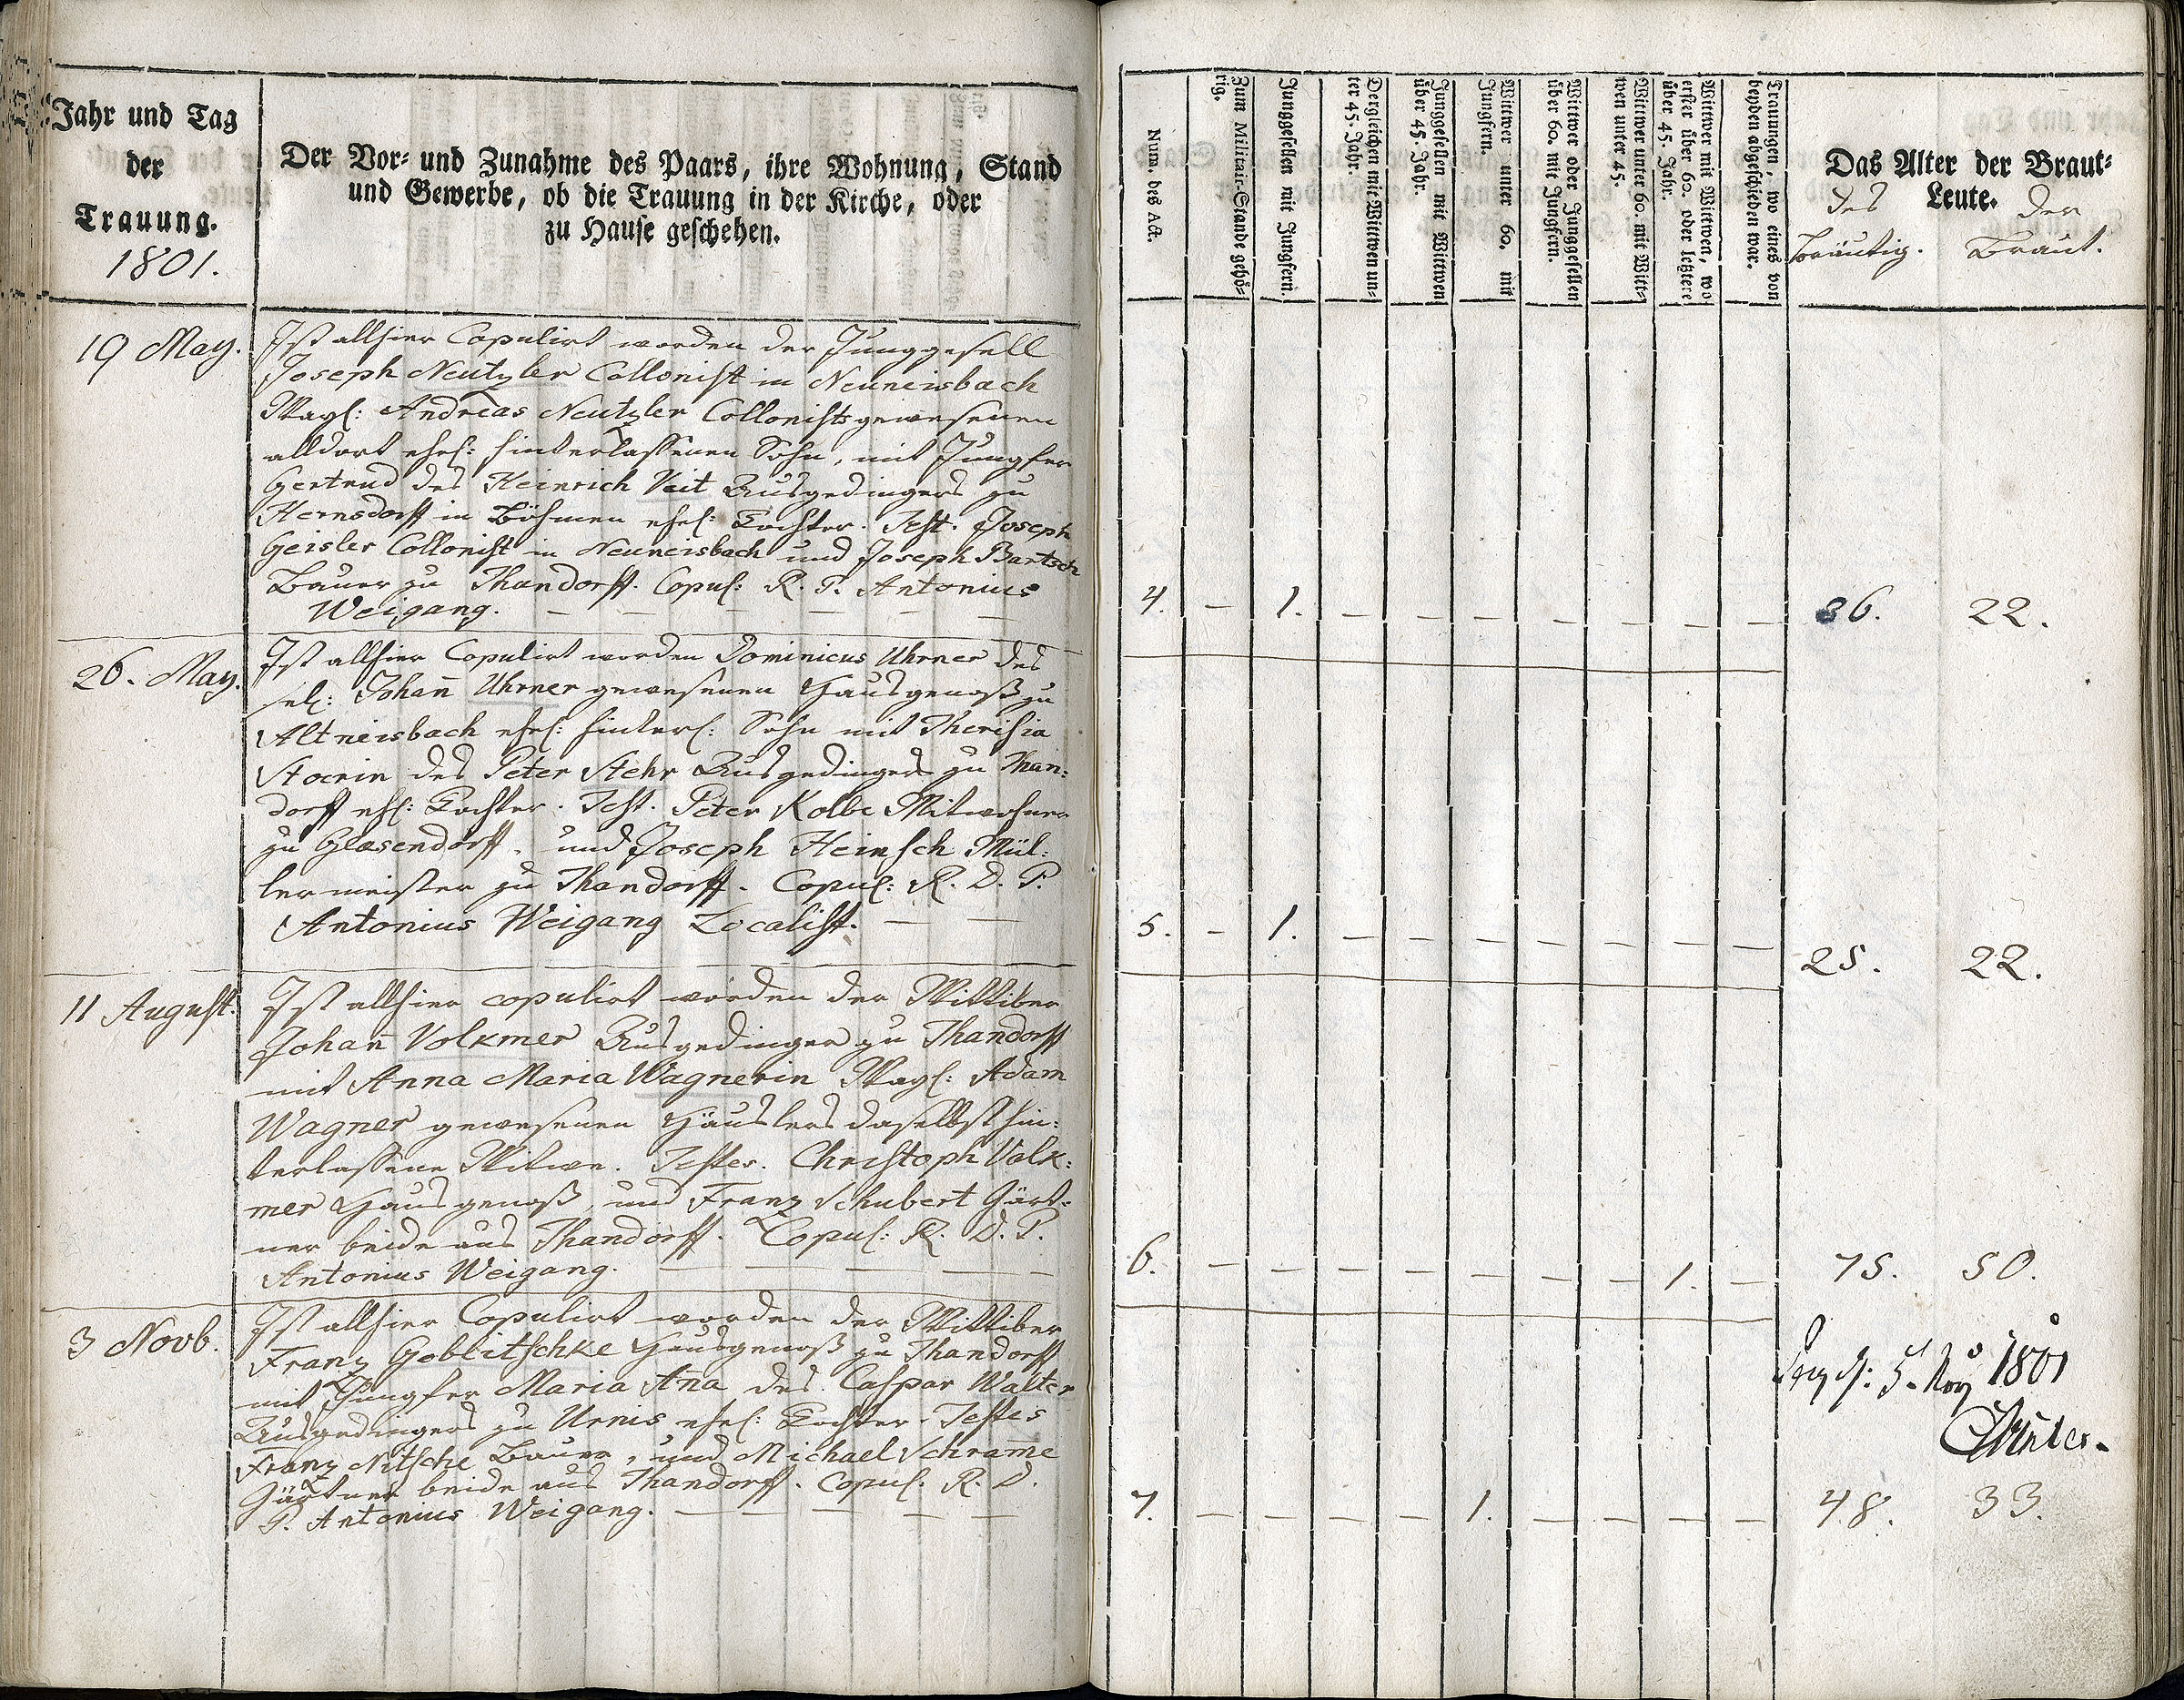 Jahr und Tag
der
Trauung.
1801.
Der Vor= und Zunahme des Paars, ihre Wohnung, Stand
und Gewerbe, ob die Trauung in der Kirche, oder
zu Hause geschehen.
19 May.
Ist allhier Copulirt worden der Junggesell
Joseph Neutzler Collonist in Neuneisbach
Weyl: Andreas Neutzler Collonists gewesenen
alldort ehel: hinterlassenen Sohn, mit Jungfer
Gertrud des Heinrich Veit Ausgedingers zu
Hernsdorff in Böhmen ehel: Tochter. Test. Joseph
Geisler Collonist in Neuneisbach und Joseph Bartsch
Bauer zu Thandorff. Copul: R. P. Antonius
Weigang.
26. May.
Ist allhier Copulirt worden Dominicus Uhrner des
sel: Johan̄ Uhrner gewesenen Hausgenoß zu
Altneisbach ehel: hinterl: Sohn mit Therisia
Stoerin des Peter Stehr Ausgedinger zu Than:
dorff ehl: Tochter. Test. Peter Kolbe Mitwohner
zu Glasendorff, und Joseph Heinsch Mül:
lermeister zu Thandorff. Copul: R. D. P.
Antonius Weigang Localist.
11 August.
Ist allhier copulirt worden der Wittiber
Johan̄ Volkmer Ausgedinger zu Thandorff
mit Anna Maria Wagnerin Weyl: Adam
Wagner gewesenen Häuslers daselbst hin:
terlassene Witwe. Testes. Christoph Volk:
mer Hausgenoß, und Franz Schubert Gärt=
ner beide aus Thandorff. Copul: R. D. P.
Antonius Weigang.
3 Novb.
Ist allhier Copulirt worden der Wittiber
Franz Goblitschke Hausgenoß zu Thandorff
mit Jungfer Maria An̄a des Caspar Walter
Ausgedingers zu Urnis ehel: Tochter. Testes
Franz Nitsche Bauer, und Michael Schram̄e
Gärtner beide aus Thandorff. Copul. R. D.
P. Antonius Weigang.
Num. des Act.
Zum Militair=Stande gehö=
rig.
Junggesellen mit Jungfern.
Dergleichen mit Wittwen un=
ter 45. Jahr.
Junggesellen mit Wittwen
über 45. Jahr.
Wittwer unter 60. mit
Jungfern.
Wittwer oder Junggesellen
über 60. mit Jungfern.
Wittwer unter 60. mit Witt=
wen unter 45.
Wittwer mit Wittwen, wo
erster über 60. oder letztere
über 45. Jahr.
Trauungen, wo eines von
beyden abgeschieden war.
Das Alter der Braut=
Leute.
des der
Bräutig. Braut.
4. – 1. – – – – – – – 36. 22.
5. – 1. – – – – – – – 25. 22.
6. – – – – – – – 1. – 75. 50.
5. 1801
7. – – – – 1. – – – – 48. 33.